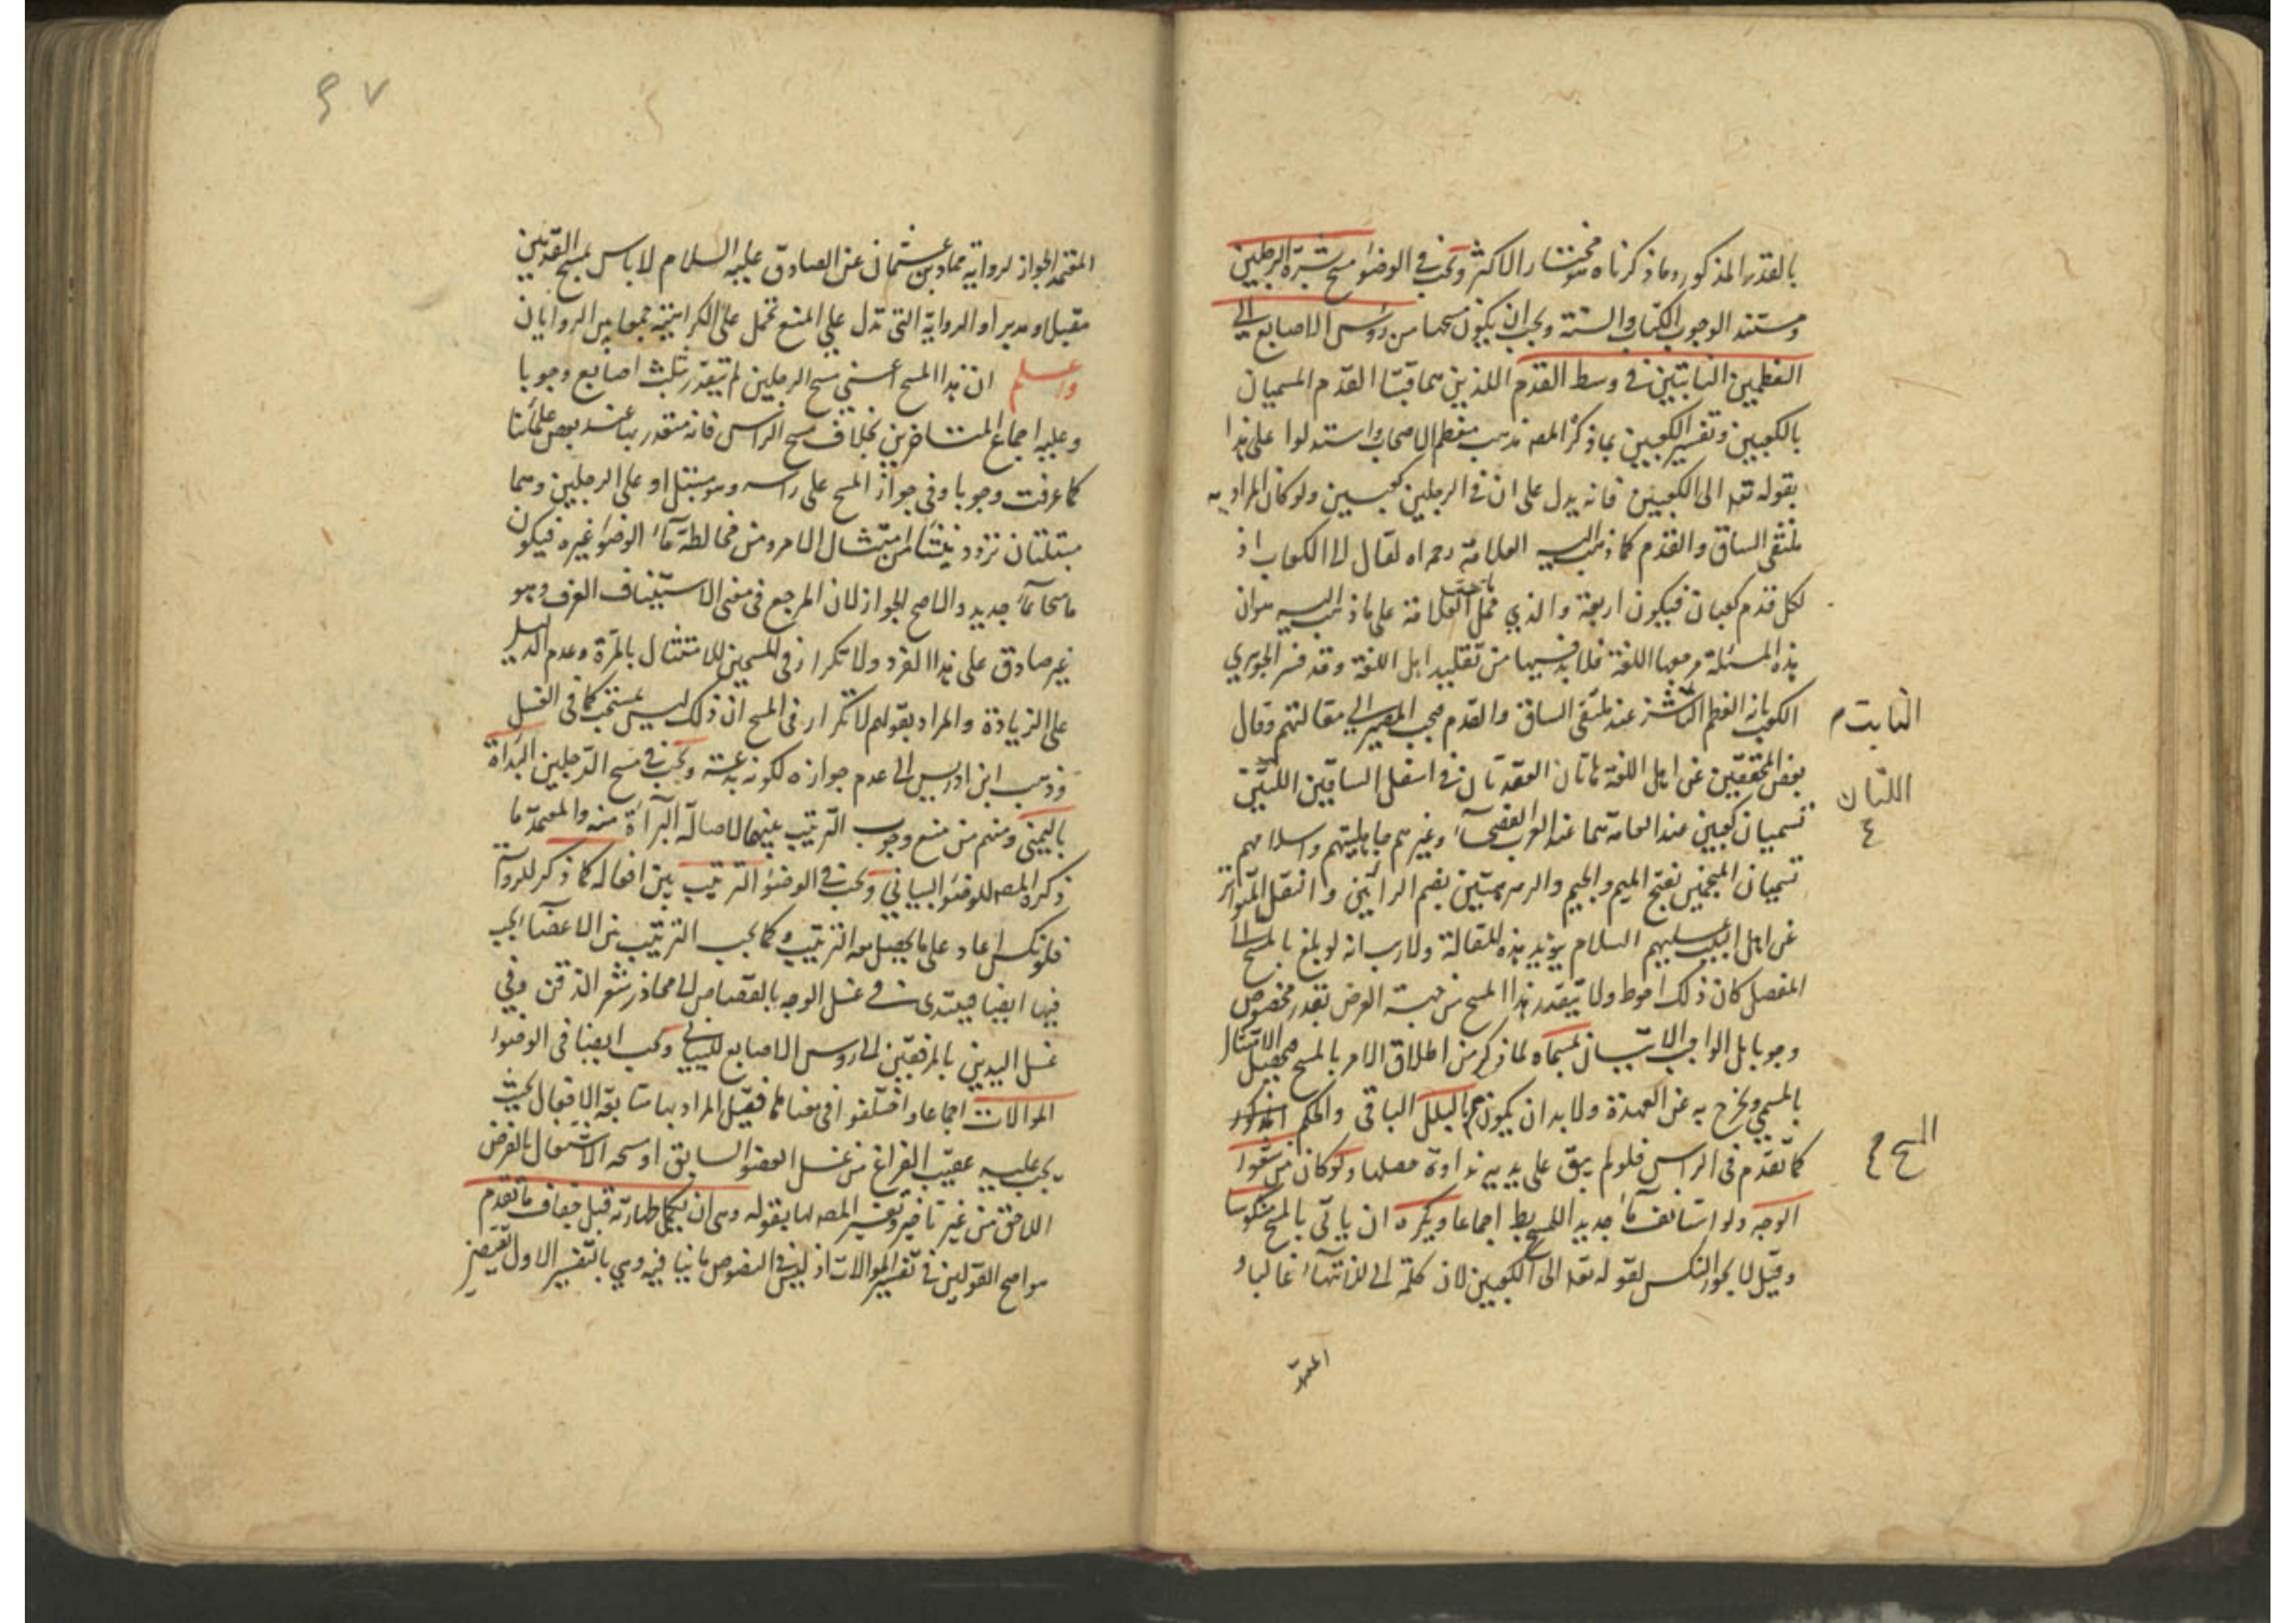 بالقدر المذكور وما ذكرناه مختار الاكثر وتجب في الوضوء مسح بشرة الرجلين
ومستند الوجوب الكتاب والسنة ويجب ان يكون مسحهما من رؤس الاصابع الى
العظمين النابتين في وسط القدم اللذين هما قبتا القدم المسميان
بالكعبين وتفسير الكعبين بما ذكره المصـ مذهب معظم الاصحاب واستدلوا على هذا
بقوله تعـ الى الكعبين فانه يدل على ان في الرجلين كعبين ولو كان المراد به
ملتقى الساق والقدم كما ذهب اليه العلامة رحمه اه لقال الى الكعاب اذ
لكل قدم كعبان فيكون اربعة والذي حمل العلامة على ما ذهب اليه هو ان
هذه المسئلة مرجعها اللغة فلا بد فيها من تقليد اهل اللغة وقد فسر الجوهري
الكعب بانه العظم الناشز عند ملتقى الساق والقدم فيجب المصير الى مقالتهم وقال
النابت م
بعض المحققين عن اهل اللغة هاتان العقدتان في اسفل الساقين اللتين
اللتان
ع
تسميان كعبين عند العامة هما عند العرب الفصحاء وغيرهم جاهليتهم واسلامهم
تسميان المنجمين بفتح الميم والجيم والرهرهتين بضم الرائين وانتقل المتواتر
عن اهل البيت عليهم السلام يؤيد هذه المقالة ولا ريب انه لو بلغ بالمسح الى
المفصل كان ذلك احوط ولا يتقدر هذا المسح من جهة العرض بقدر مخصوص
وجوبا بل الواجب الاتيان بمسماه لما ذكر من اطلاق الامر بالمسح فيحصل الامتثال
بالمسمى ويخرج به عن العهدة ولا بد ان يكون بالبلل الباقي والحكم المذكور
المسح م ع
كما تقدم في الراس فلو لم يبق على يديه نداوة فعليها ولو كان من شعور
الوجه ولو استانف ماء جديد اللمسح بطـ اجماعا ويكره ان ياتي بالمسح منكوسا
وقيل لا يجوز النكس لقوله تعـ الى الكعبين لان كلمة الى للانتهاء غالبا و
المعتمد
٢٠٧
المعتمد الجواز لرواية حماد بن عثمان عن الصادق عليه السلام لا باس بمسح القدمين
مقبلا ومدبرا والرواية التي تدل على المنع تحمل على الكراهية جمعا بين الروايات
واعلم ان هذا المسح اعني مسح الرجلين لم يتقدر بثلث اصابع وجوبا
وعليه اجماع المتاخرين بخلاف مسح الراس فانه متقدر بها عند بعض علمائنا
كما عرفت وجوبا وفي جواز المسح على راسه وهو مبتل او على الرجلين وهما
مبتلتان تردد ينشا من امتثال الامر ومن مخالطة ماء الوضوء غيره فيكون
ماسحا بماء جديد والاصح الجواز لان المرجع في معنى الاستيناف العرف وهو
غير صادق على هذا الفرد ولا تكرار في المسحين للامتثال بالمرة وعدم الدليل
على الزيادة والمراد بقولهم لا تكرار في المسح ان ذلك ليس بمستحب كما في الغسل
وذهب ابن ادريس الى عدم جوازه لكونه بدعة ويجب في مسح الرجلين البداة
باليمنى ومنهم من منع وجوب الترتيب بينهما لاصالة البراءة منه والمعتمد ما
ذكره المصـ للوضوء البياني ويجب في الوضوء الترتيب بين افعاله كما ذكر للرواية
فلو نكس اعاد على ما يحصل معه الترتيب وكما يجب الترتيب بين الاعضاء يجب
فيها ايضا فيبتدى في غسل الوجه بالقصاص الى محاذر شعر الذقن وفي
غسل اليدين بالمرفقين الى رؤس الاصابع للبياني ويجب ايضا في الوضوء
الموالات اجماعا واختلفوا في معناها فقيل المراد بها متابعة الافعال بحيث
يجب عليه عقيب الفراغ من غسل العضو السابق او مسحه الاشتغال بالفرض
اللاحق من غير تاخير وتفسير المصـ لها بقوله وهي ان يكمل طهارته قبل جفاف ما تقدم
هو اصح القولين في تفسير الموالات اذ ليس في النصوص ما ينافيه وهي بالتفسير الاول